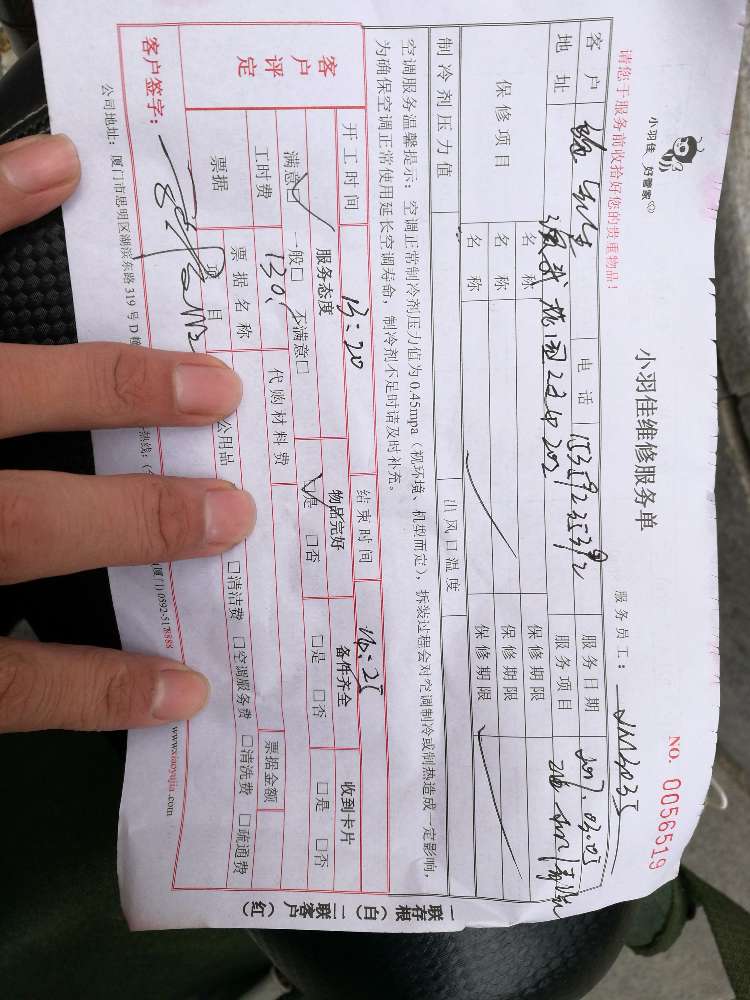 小羽佳 好管家
小羽佳维修服务单
NO. 0056519
请您于服务前收拾好您的贵重物品!
服务员工:
客户 电话 服务日期 2017.03.05
地址 服务项目
保修项目 名称 保修期限
名称 保修期限
名称 保修期限
制冷剂压力值 出风口温度
空调服务温馨提示: 空调正常制冷剂压力值为0.45mpa(视环境、机型而定), 拆装过程会对空调制冷或制热造成一定影响,
为确保空调正常使用延长空调寿命, 制冷剂不足时请及时补充。
开工时间 13:20 结束时间 16:25
客户评定 服务态度 物品完好 备件齐全 收到卡片
满意□ 一般□ 不满意□ □是 □否 □是 □否 □是 □否
工时费 130 代购材料费 票据金额
票据 票据名称
项目 公用品 □清洁费 □空调服务费 □清洗费 □疏通费
客户签字:
公司地址: 厦门市思明区湖滨东路319号D
热线: (厦门) 0592-5178888 www.xiaoyujia.com
一联存根(白) 二联客户(红)